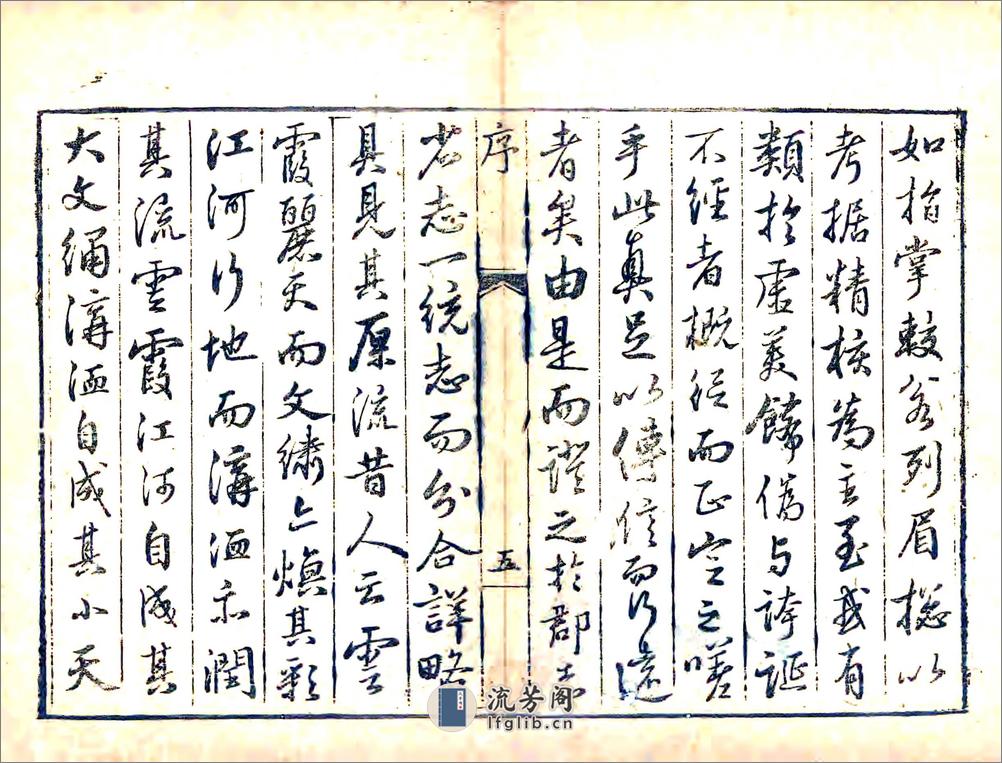 如指掌較若列眉摠以
考据精核為主至或有
類於虛美餙偽与誇誕
不經者概從而正定之嗟
乎此真足以傳信而行遠
者矣由是而證之於郡志
序
五
省志一統志而分合詳略
具見其原流昔人云雲
霞麗天而文繡亦煥其彩
江河行地而溝洫亦潤
其流雲霞江河自成其
大文繡溝洫自成其小天
流芳阁
lfglib.cn